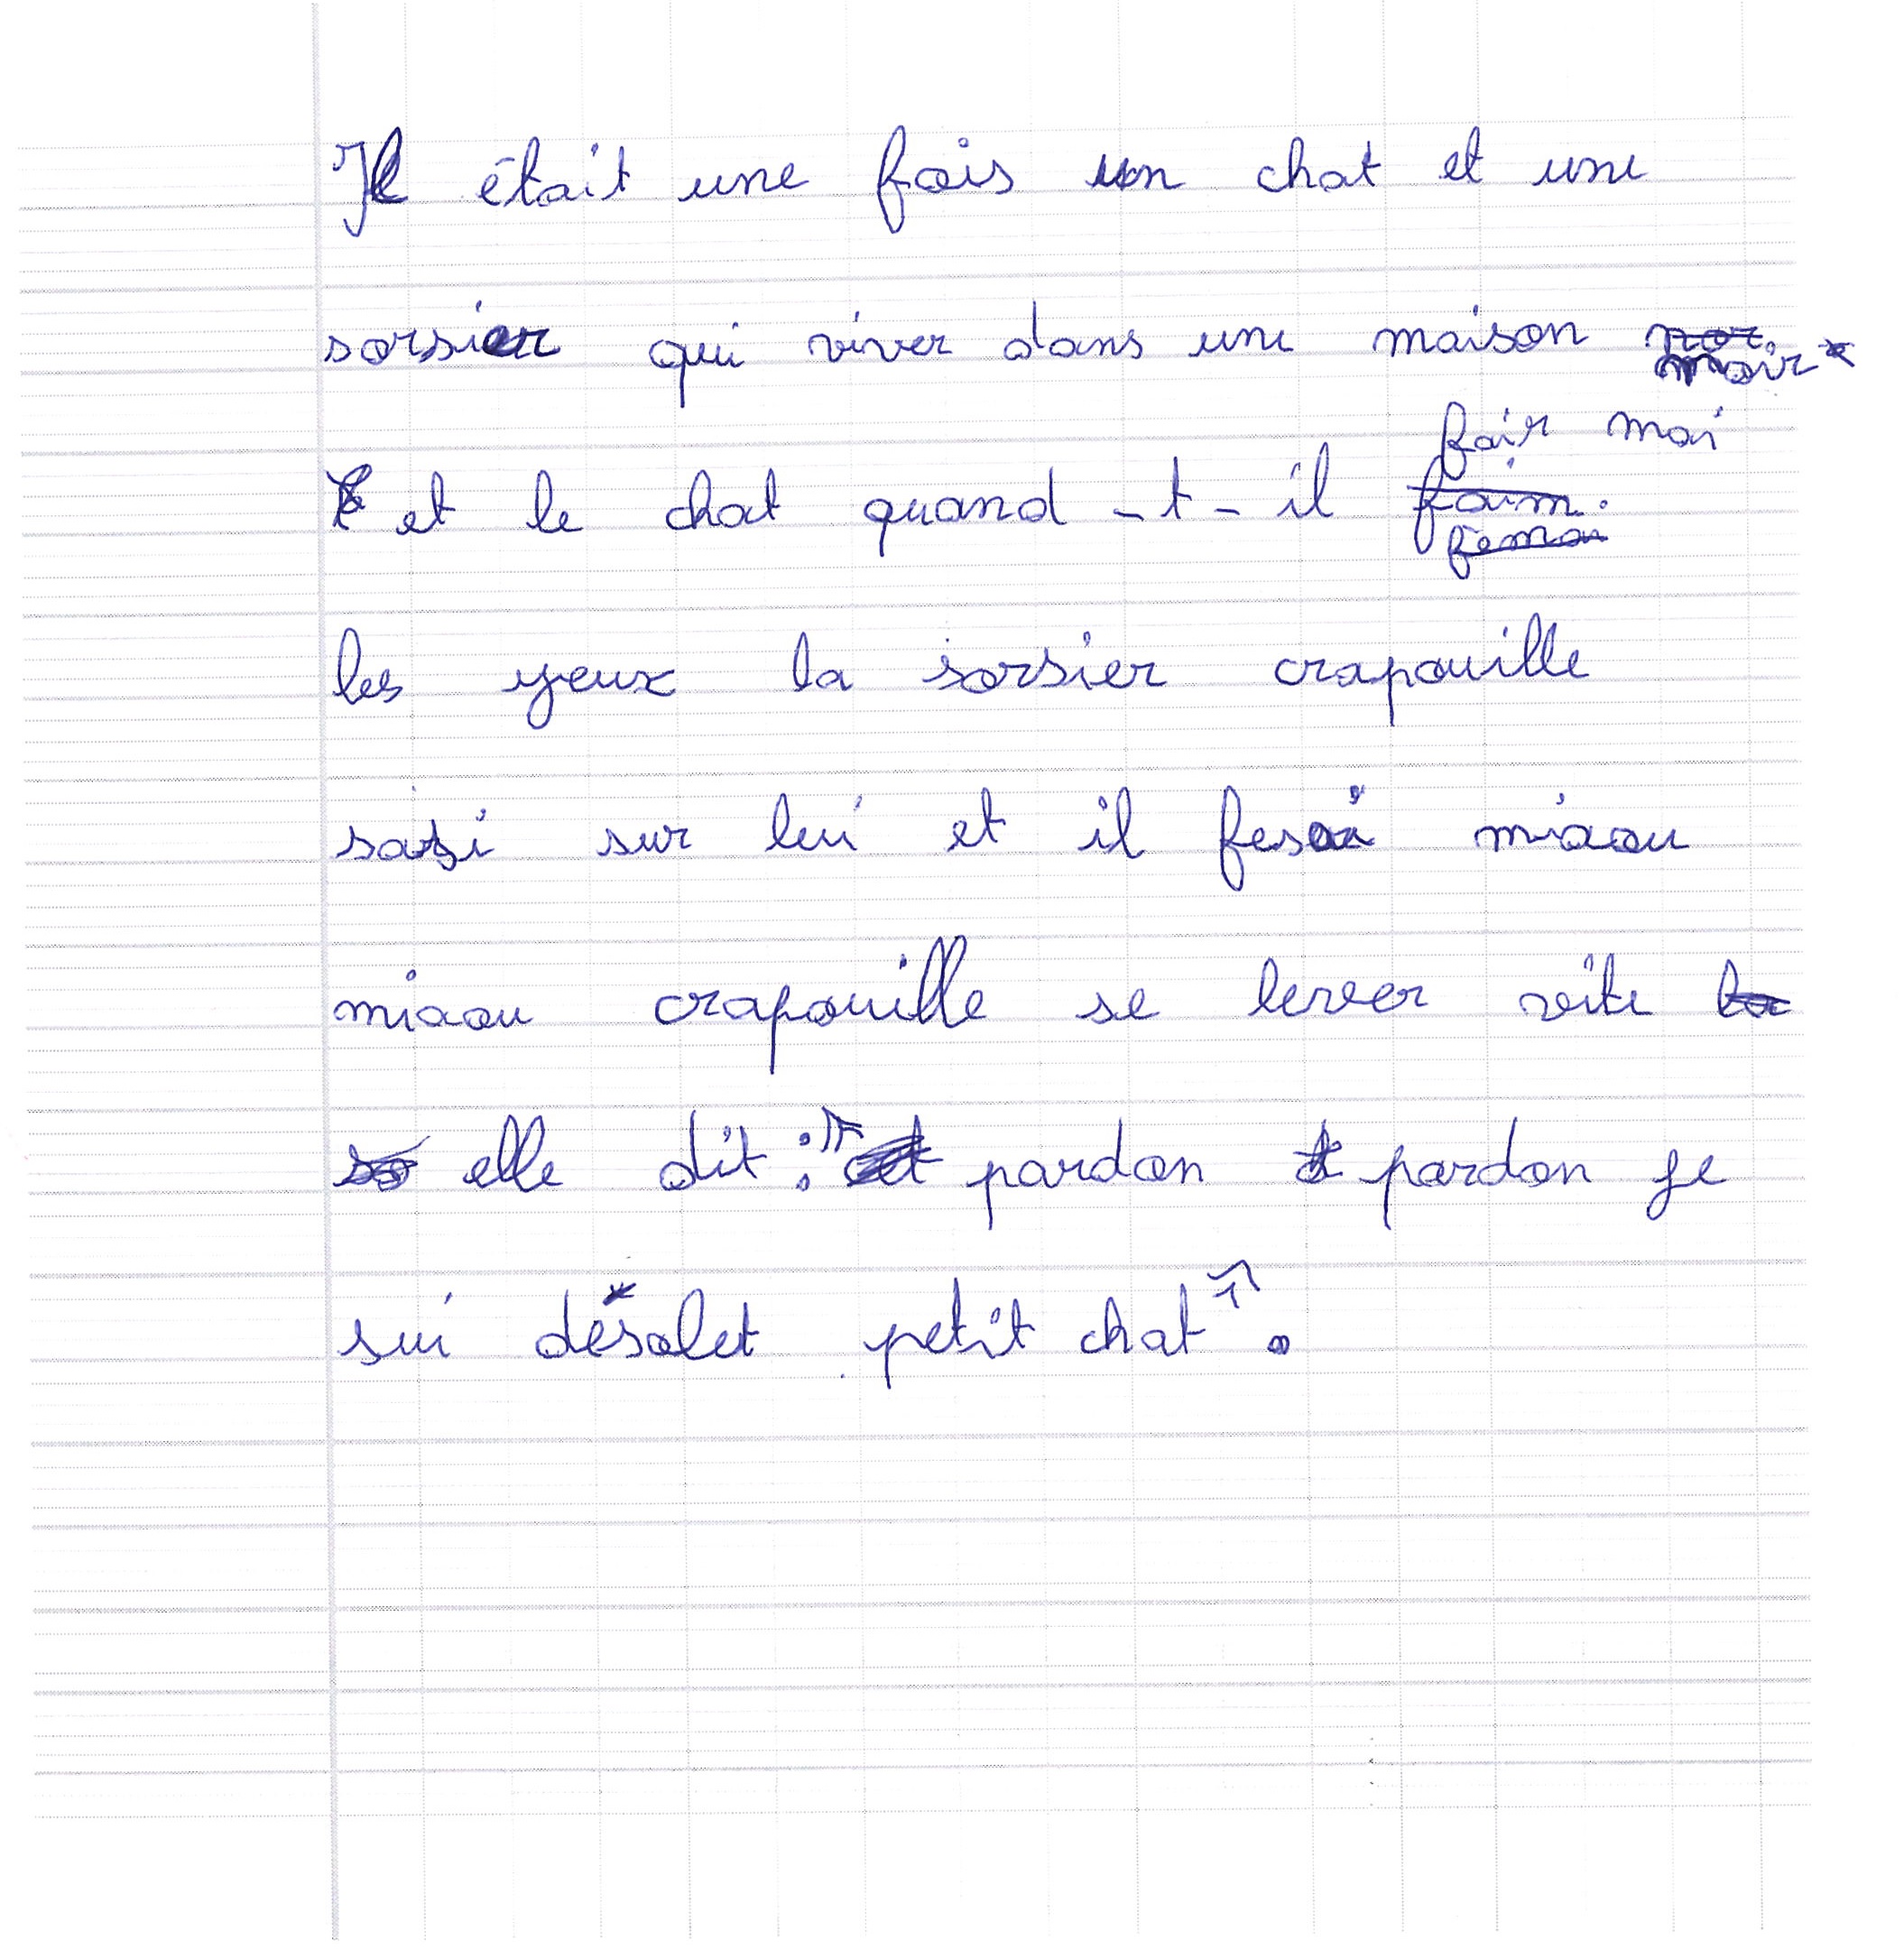 Il était une fois un chat et une
sorsier qui viver dans une maison noir
fair moi
et le chat quand -t- il
les yeux la sorsier crapouille
sasi sur lui et il fesai miaou
miaou crapouille se lerver vite
elle dit : " pardon pardon je
sui désolet petit chat ".